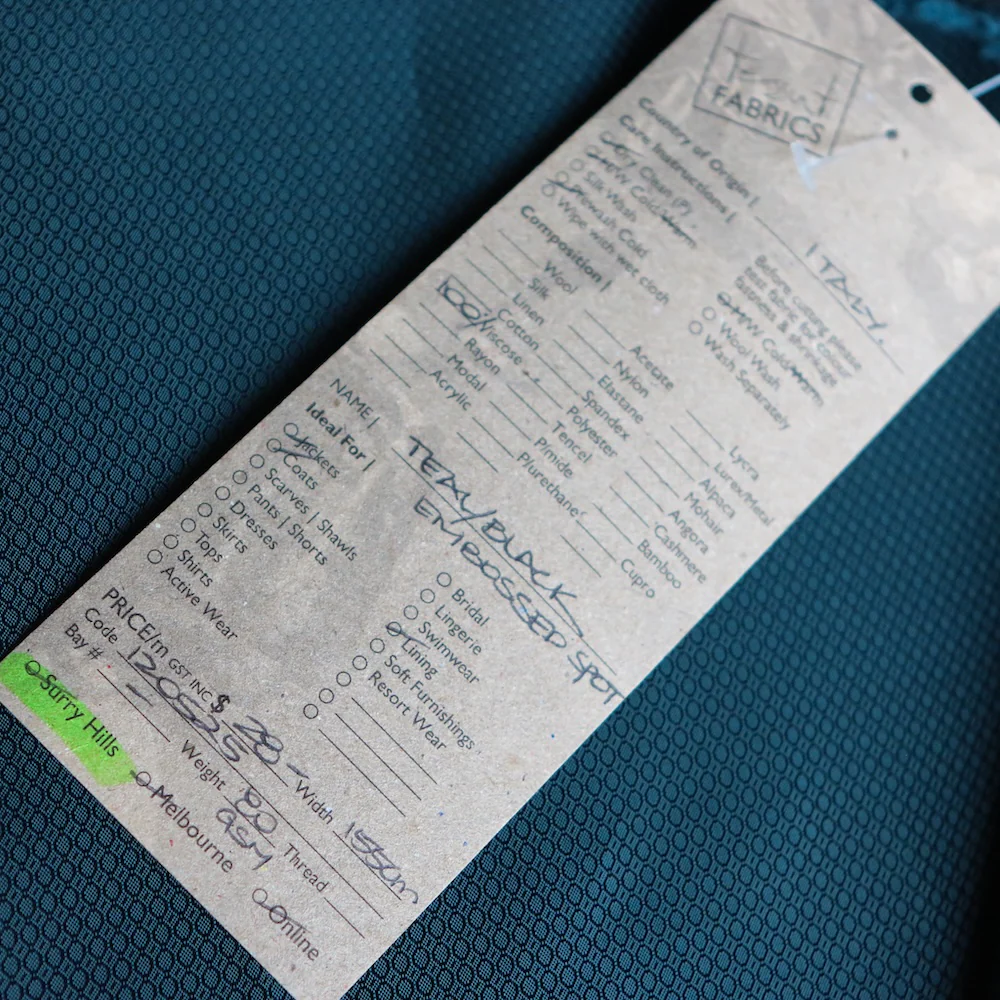 Tessuti
FABRICS
Country of Origin | ITALY.
Care Instructions |
Dry Clean (P)
HW Cold/Warm
Silk Wash
Prewash Cold
Wipe with wet cloth
Before cutting please
test fabric for colour
fastness & shrinkage
MW Cold/Warm
Wool Wash
Wash Separately
Composition |
Wool
Silk
Linen
Cotton
100% Viscose
Rayon
Modal
Acrylic
Acetate
Nylon
Elastane
Spandex
Polyester
Tencel
P/mide
P/urethane
Lycra
Lurex/Metal
Alpaca
Mohair
Angora
Cashmere
Bamboo
Cupro
NAME | TEAL/BLACK
EMBOSSED SPOT
Ideal For |
Jackets
Coats
Scarves | Shawls
Pants | Shorts
Dresses
Skirts
Tops
Shirts
Active Wear
Bridal
Lingerie
Swimwear
Lining
Soft Furnishings
Resort Wear
PRICE/m GST INC $ 28-
Code 120525 Width 155cm
Bay # - Weight 80 GSM Thread
Surry Hills Melbourne Online